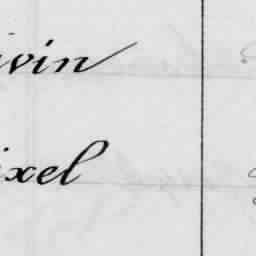 ivin
ixel